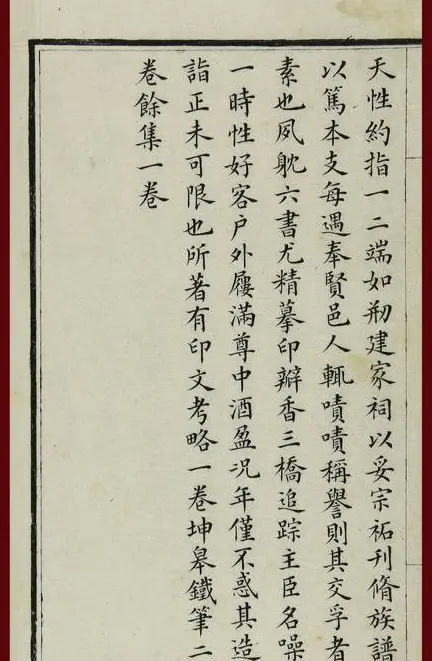 天性約指一二端如剏建家祠以妥宗祏刊脩族譜
以篤本支每遇奉賢邑人輒嘖嘖稱譽則其交孚者
素也夙躭六書尤精摹印瓣香三橋追踪主臣名噪
一時性好客户外屨滿尊中酒盈况年僅不惑其造
詣正未可限也所著有印文考略一卷坤皋鐵筆二
卷餘集一卷